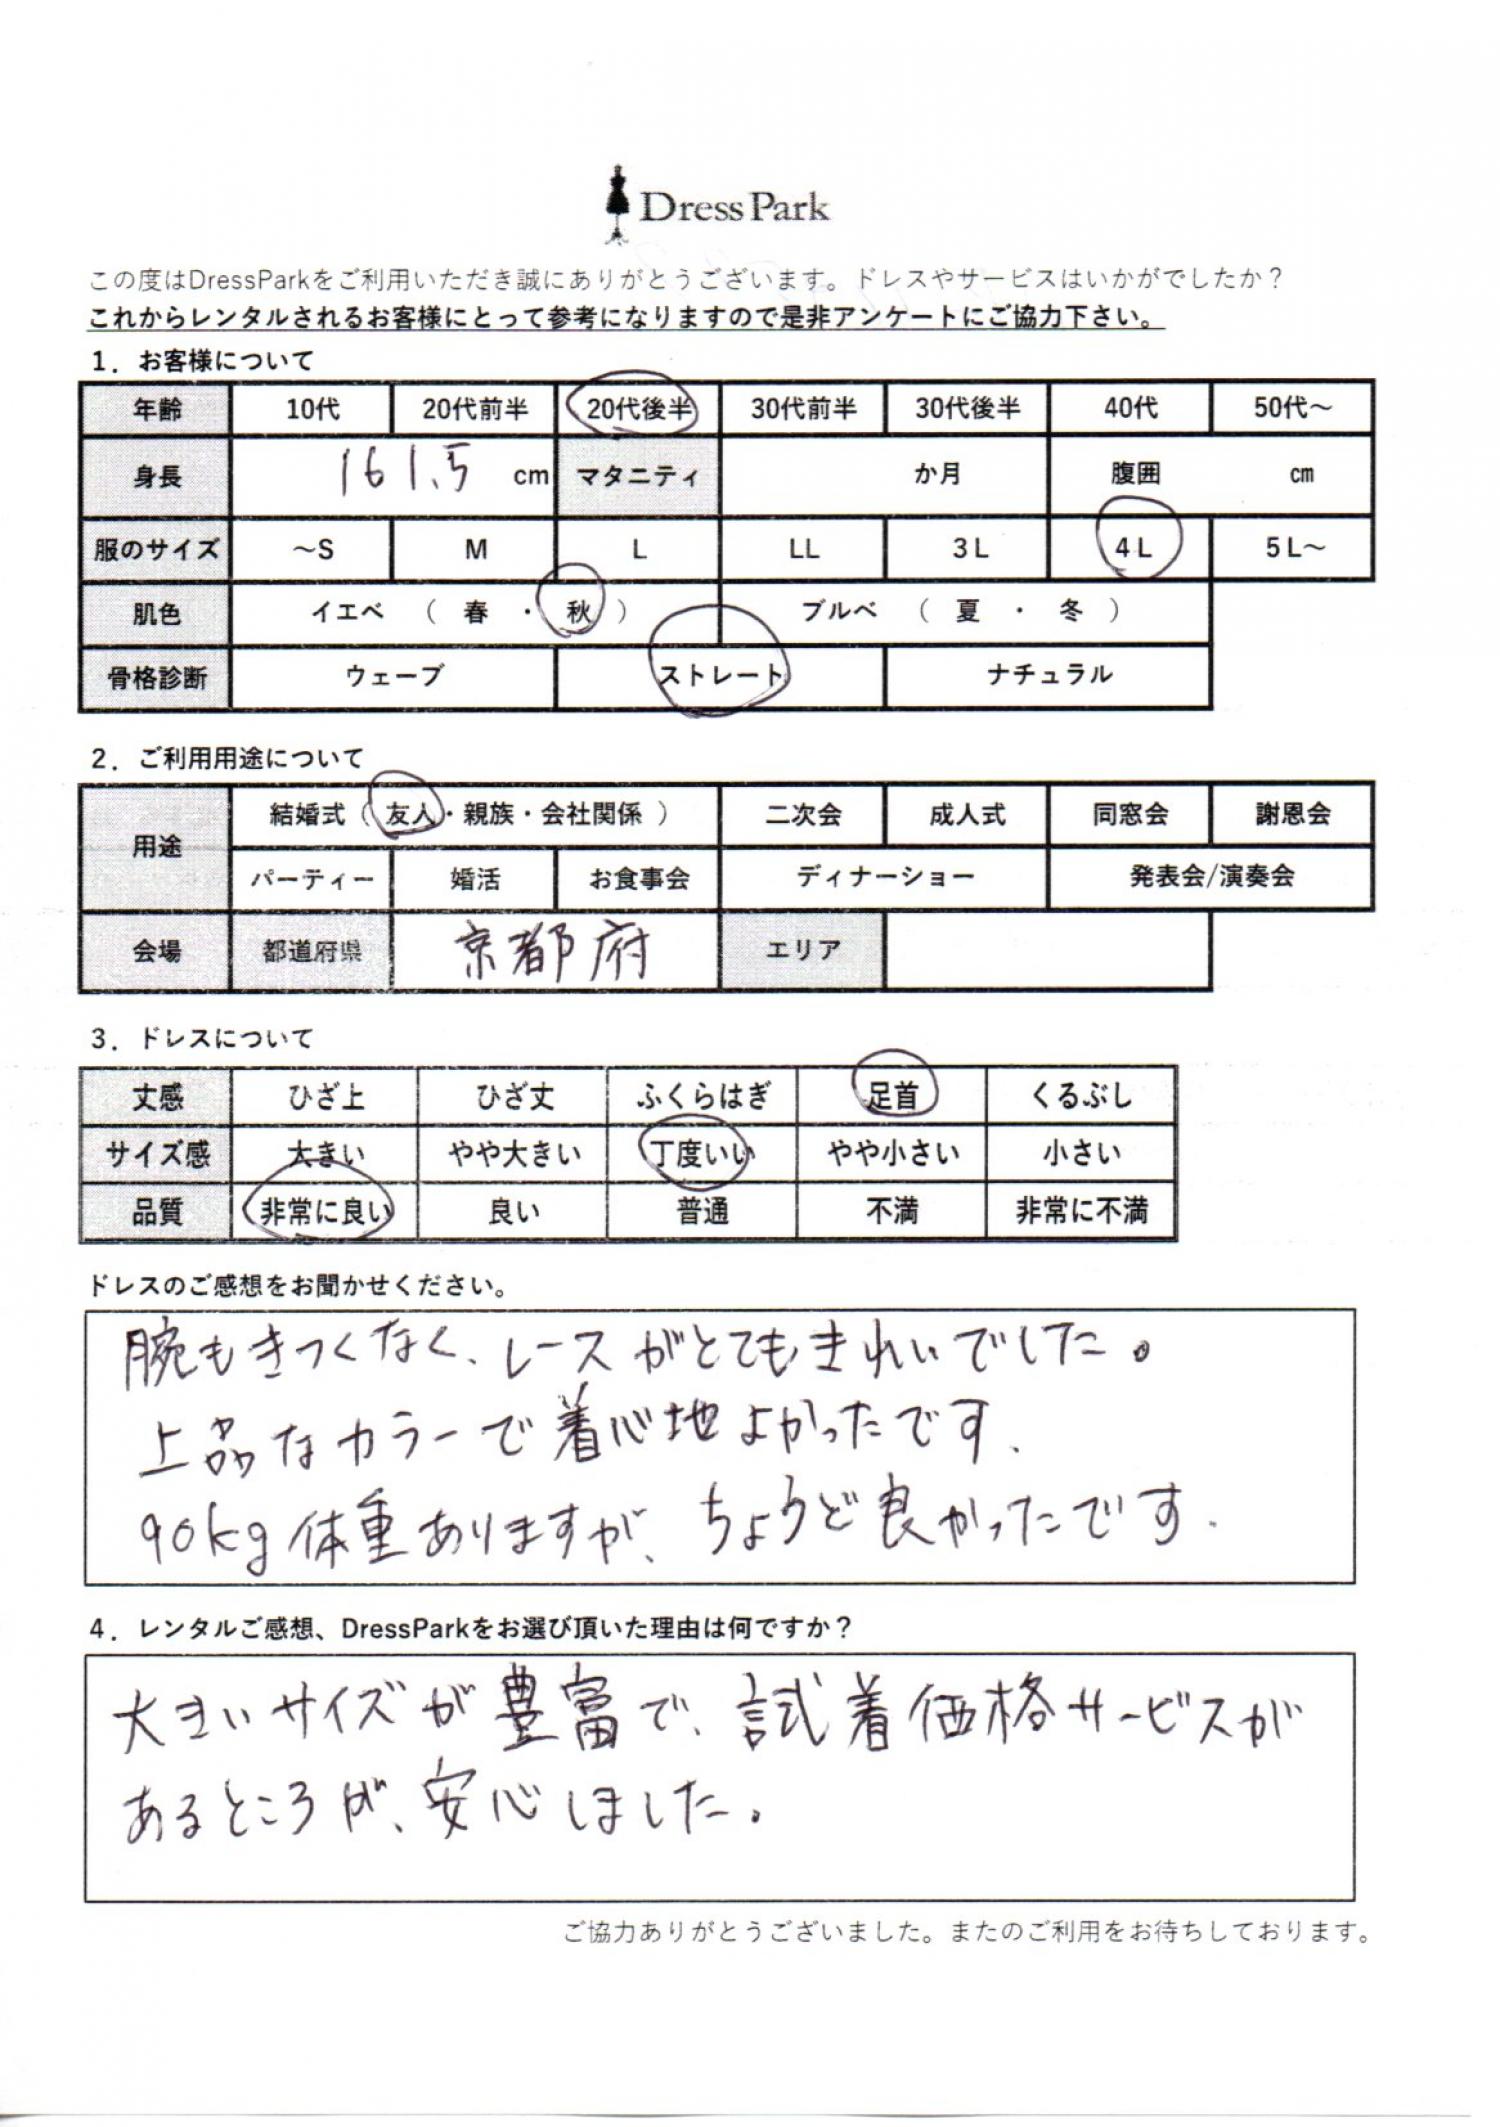 Dress Park
この度はDressParkをご利用いただき誠にありがとうございます。ドレスやサービスはいかがでしたか？
これからレンタルされるお客様にとって参考になりますので是非アンケートにご協力下さい。
1．お客様について
年齢 10代 20代前半 20代後半 30代前半 30代後半 40代 50代～
身長 161.5 cm マタニティ か月 腹囲 cm
服のサイズ ～S M L LL 3L 4L 5L～
肌色 イエベ （ 春 ・ 秋 ） ブルベ （ 夏 ・ 冬 ）
骨格診断 ウェーブ ストレート ナチュラル
2．ご利用用途について
用途 結婚式（ 友人・親族・会社関係 ） 二次会 成人式 同窓会 謝恩会
パーティー 婚活 お食事会 ディナーショー 発表会/演奏会
会場 都道府県 京都府 エリア
3．ドレスについて
丈感 ひざ上 ひざ丈 ふくらはぎ 足首 くるぶし
サイズ感 大きい やや大きい 丁度いい やや小さい 小さい
品質 非常に良い 良い 普通 不満 非常に不満
ドレスのご感想をお聞かせください。
腕もきつくなく、レースがとてもきれいでした。
上品なカラーで着心地よかったです、
90kg体重ありますが、ちょうど良かったです．
4．レンタルご感想、DressParkをお選び頂いた理由は何ですか？
大きいサイズが豊富で、試着価格サービスが
あるところが、安心しました。
ご協力ありがとうございました。またのご利用をお待ちしております。